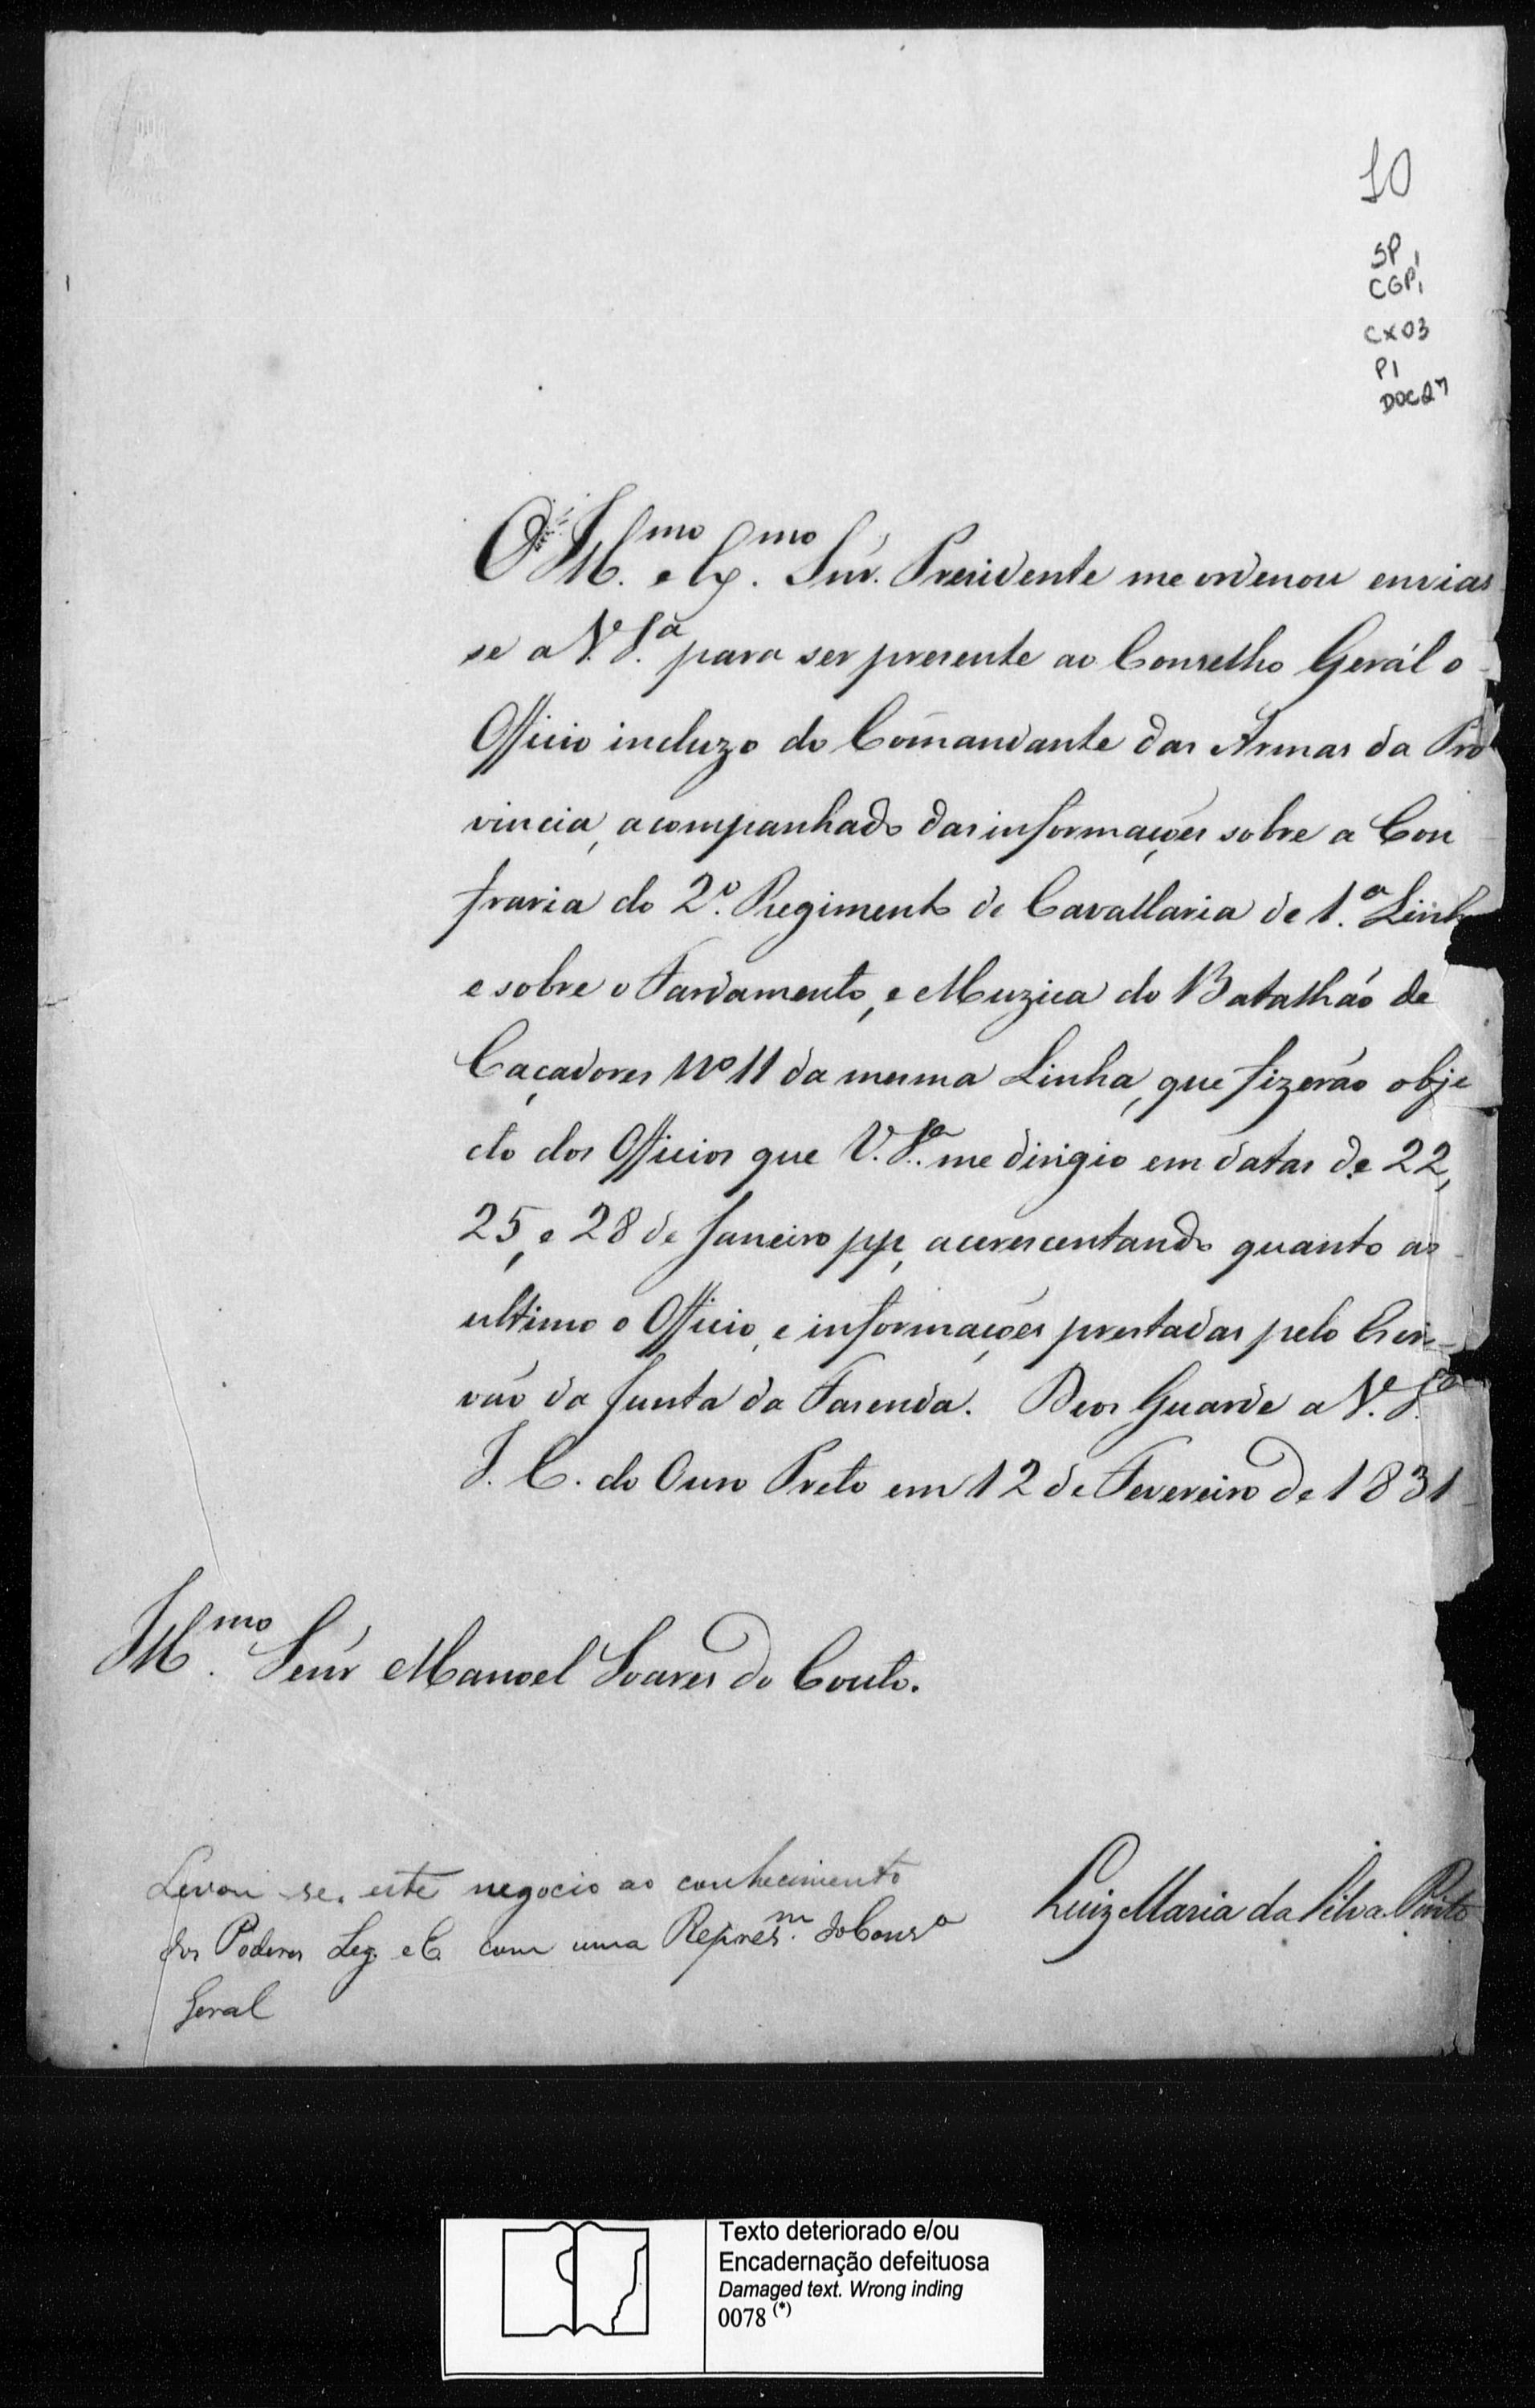 10
SP,
CGP,
CX03
P1
DOC27
O Ill.mo e Ex.mo Snr. Presidente me ordenou envias
se a V. S.a para ser presente ao Conselho Gerál o
Officio incluzo do Comandante das Armas da Pro
vincia, acompanhado das informações sobre a Con
fraria do 2.o Regimento de Cavallaria de 1.a Linh
e sobre o Fardamento, e Muzica do Batalhão de
Caçadores No 11 da mesma Linha, que fizerão obje
cto dos Officios que V. S.a me dirigio em datas de 22,
25, e 28 de Janeiro pp, accrescentando quanto ao
ultimo o Officio, e informações prestadas pelo Escri-
vão da Junta da Fasenda. Deos Guarde a V. S.a
I. C. do Ouro Preto em 12 de Fevereiro de 1831
Ill.mo Senr Manoel Soares do Couto.
Luiz Maria da Silva Pinto
Levou-se este negocio ao conhecimento
dos Poderes Leg. e C. com uma Repres.m do Cons.o
Geral
Texto deteriorado e/ou
Encadernação defeituosa
Damaged text. Wrong inding
0078 (*)